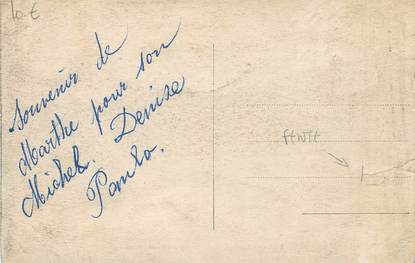 10.€
Souvenir de
Marthe pour son
Michel. Denise
Paulo.